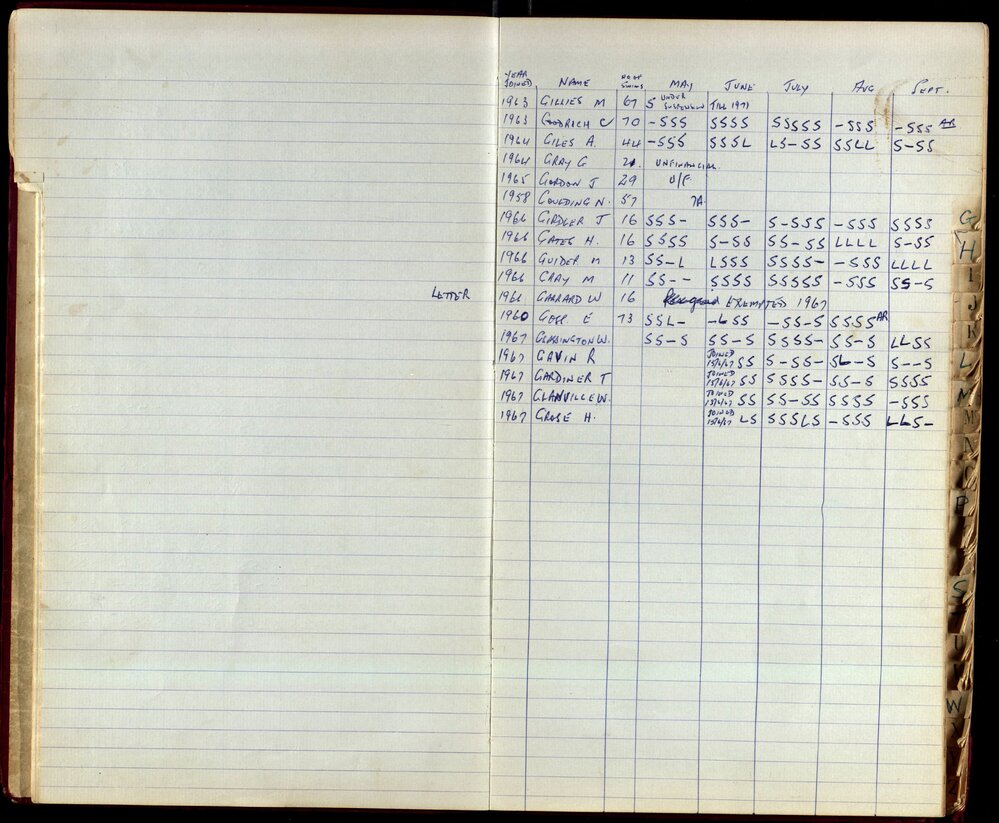 YEAR JOINED NAME NO OF SWIMS MAY JUNE JULY AUG SEPT.
1963 GILLIES M 67 S UNDER SUSPENSION TILL 1971
1963 GOODRICH C 70 -SSS SSSS SSSSS -SSS -SSS AR
1964 GILES A. 44 -SSS SSSL LS-SS SSLL S-SS
1964 GRAY G 21. UNFINANCIAL.
1965 GORDON J 29 U/F.
1958 GOULDING N. 57
1966 GIRDLER J 16 SSS- SSS- S-SSS -SSS SSSS
1966 GATES H. 16 SSSS S-SS SS-SS LLLL S-SS
1966 GUIDER M 13 SS-L LSSS SSSS- -SSS LLLL
1966 GRAY M 11 SS-- SSSS SSSSS -SSS SS-S
LETTER 1966 GARRARD W 16 EXEMPTED 1967
1960 E 73 SSL- -LSS -SS-S SSSS AR
1967 GLASSINGTON W. SS-S SS-S SSSS- SS-S LLSS
1967 GAVIN R JOINED 15/6/67 SS S-SS- SL-S S--S
1967 GARDINER T JOINED 15/6/67 SS SSSS- SS-S SSSS
1967 GLANVILLE W. JOINED 15/6/67 SS SS-SS SSSS -SSS
1967 GROSE H. JOINED 15/6/67 LS SSSLS -SSS LLS-
G
H
I
J
K
L
M
M
N
P
S
U
W